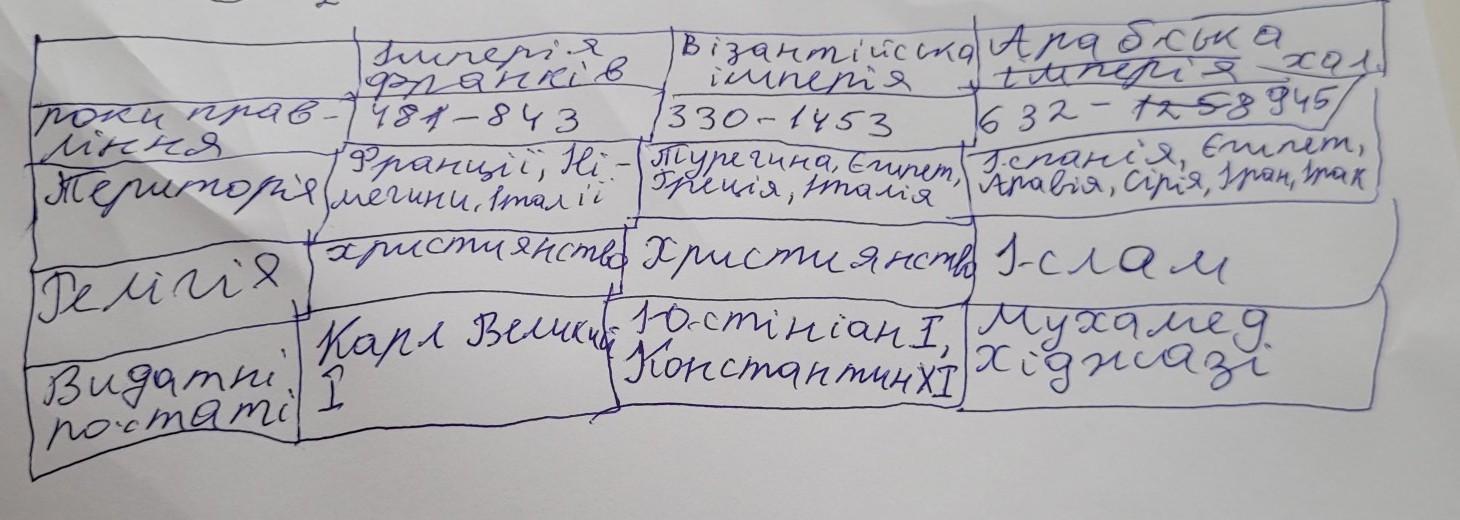 Імперія франків
Візантійська імперія
Арабська імперія хал.
роки правління
481-843
330-1453
632-1258 945
Територія
Франції, Ні-
мечини, Італії
Туреччина, Єгипет,
Греція, Італія
Іспанія, Єгипет,
Аравія, Сірія, Іран, Ірак
Релігія
християнство
Християнство
Іслам
Видатні
постаті
Карл Великий
І
Юстініан І,
Константин ХІ
Мухамед
Хіджазі